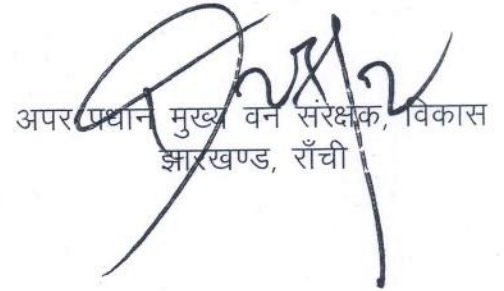 अपर प्रधान मुख्य वन संरक्षक, विकास
झारखण्ड, राँची